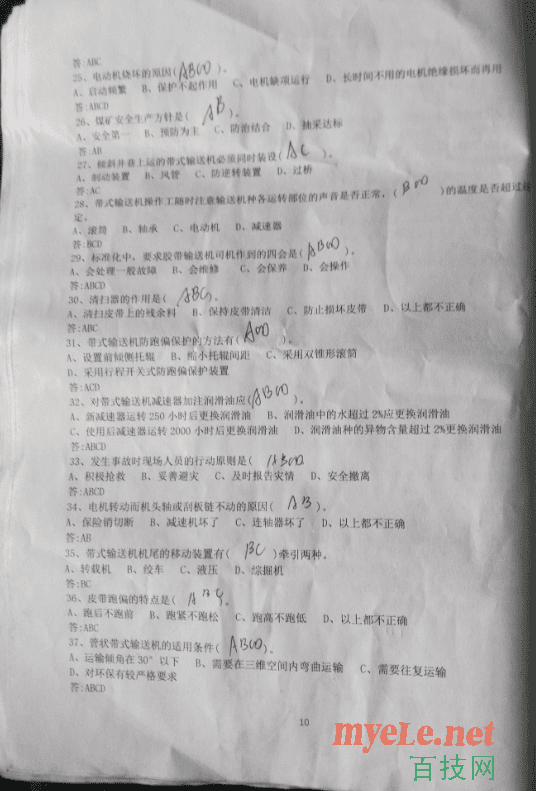 答:ABC
25、电动机烧坏的原因(ABCD)。
A、启动频繁 B、保护不起作用 C、电机缺项运行 D、长时间不用的电机绝缘损坏而再用
答:ABCD
26、煤矿安全生产方针是( AB )。
A、安全第一 B、预防为主 C、防治结合 D、抽采达标
答:AB
27、倾斜井巷上运的带式输送机必须同时装设( AC )。
A、制动装置 B、风管 C、防逆转装置 D、过桥
答:AC
28、带式输送机操作工随时注意输送机种各运转部位的声音是否正常,( BCD )的温度是否超过规
定。
A、滚筒 B、轴承 C、电动机 D、减速器
答:BCD
29、标准化中,要求胶带输送机司机作到的四会是( ABCD )。
A、会处理一般故障 B、会维修 C、会保养 D、会操作
答:ABCD
30、清扫器的作用是( ABC )。
A、清扫皮带上的残余料 B、保持皮带清洁 C、防止损坏皮带 D、以上都不正确
答:ABC
31、带式输送机防跑偏保护的方法有( ACD )。
A、设置前倾侧托辊 B、缩小托辊间距 C、采用双锥形滚筒
D、采用行程开关式防跑偏保护装置
答:ACD
32、对带式输送机减速器加注润滑油应(ABCD)。
A、新减速器运转250小时后更换润滑油 B、润滑油中的水超过2%应更换润滑油
C、使用后减速器运转2000小时后更换润滑油 D、润滑油种的异物含量超过2%更换润滑油
答:ABCD
33、发生事故时现场人员的行动原则是( ABCD
A、积极抢救 B、妥善避灾 C、及时报告灾情 D、安全撤离
答:ABCD
34、电机转动而机头轴或刮板链不动的原因( AB )。
A、保险销切断 B、减速机坏了 C、连轴器坏了 D、以上都不正确
答:AB
35、带式输送机机尾的移动装置有( BC )牵引两种。
A、转载机 B、绞车 C、液压 D、综掘机
答:BC
36、皮带跑偏的特点是( ABC 。
A、跑后不跑前 B、跑紧不跑松 C、跑高不跑低 D、以上都不正确
答:ABC
37、管状带式输送机的适用条件( ABCD)。
A、运输倾角在30°以下 B、需要在三维空间内弯曲运输 C、需要往复运输
D、对环保有较严格要求
答:ABCD
10
myele.net
百技网